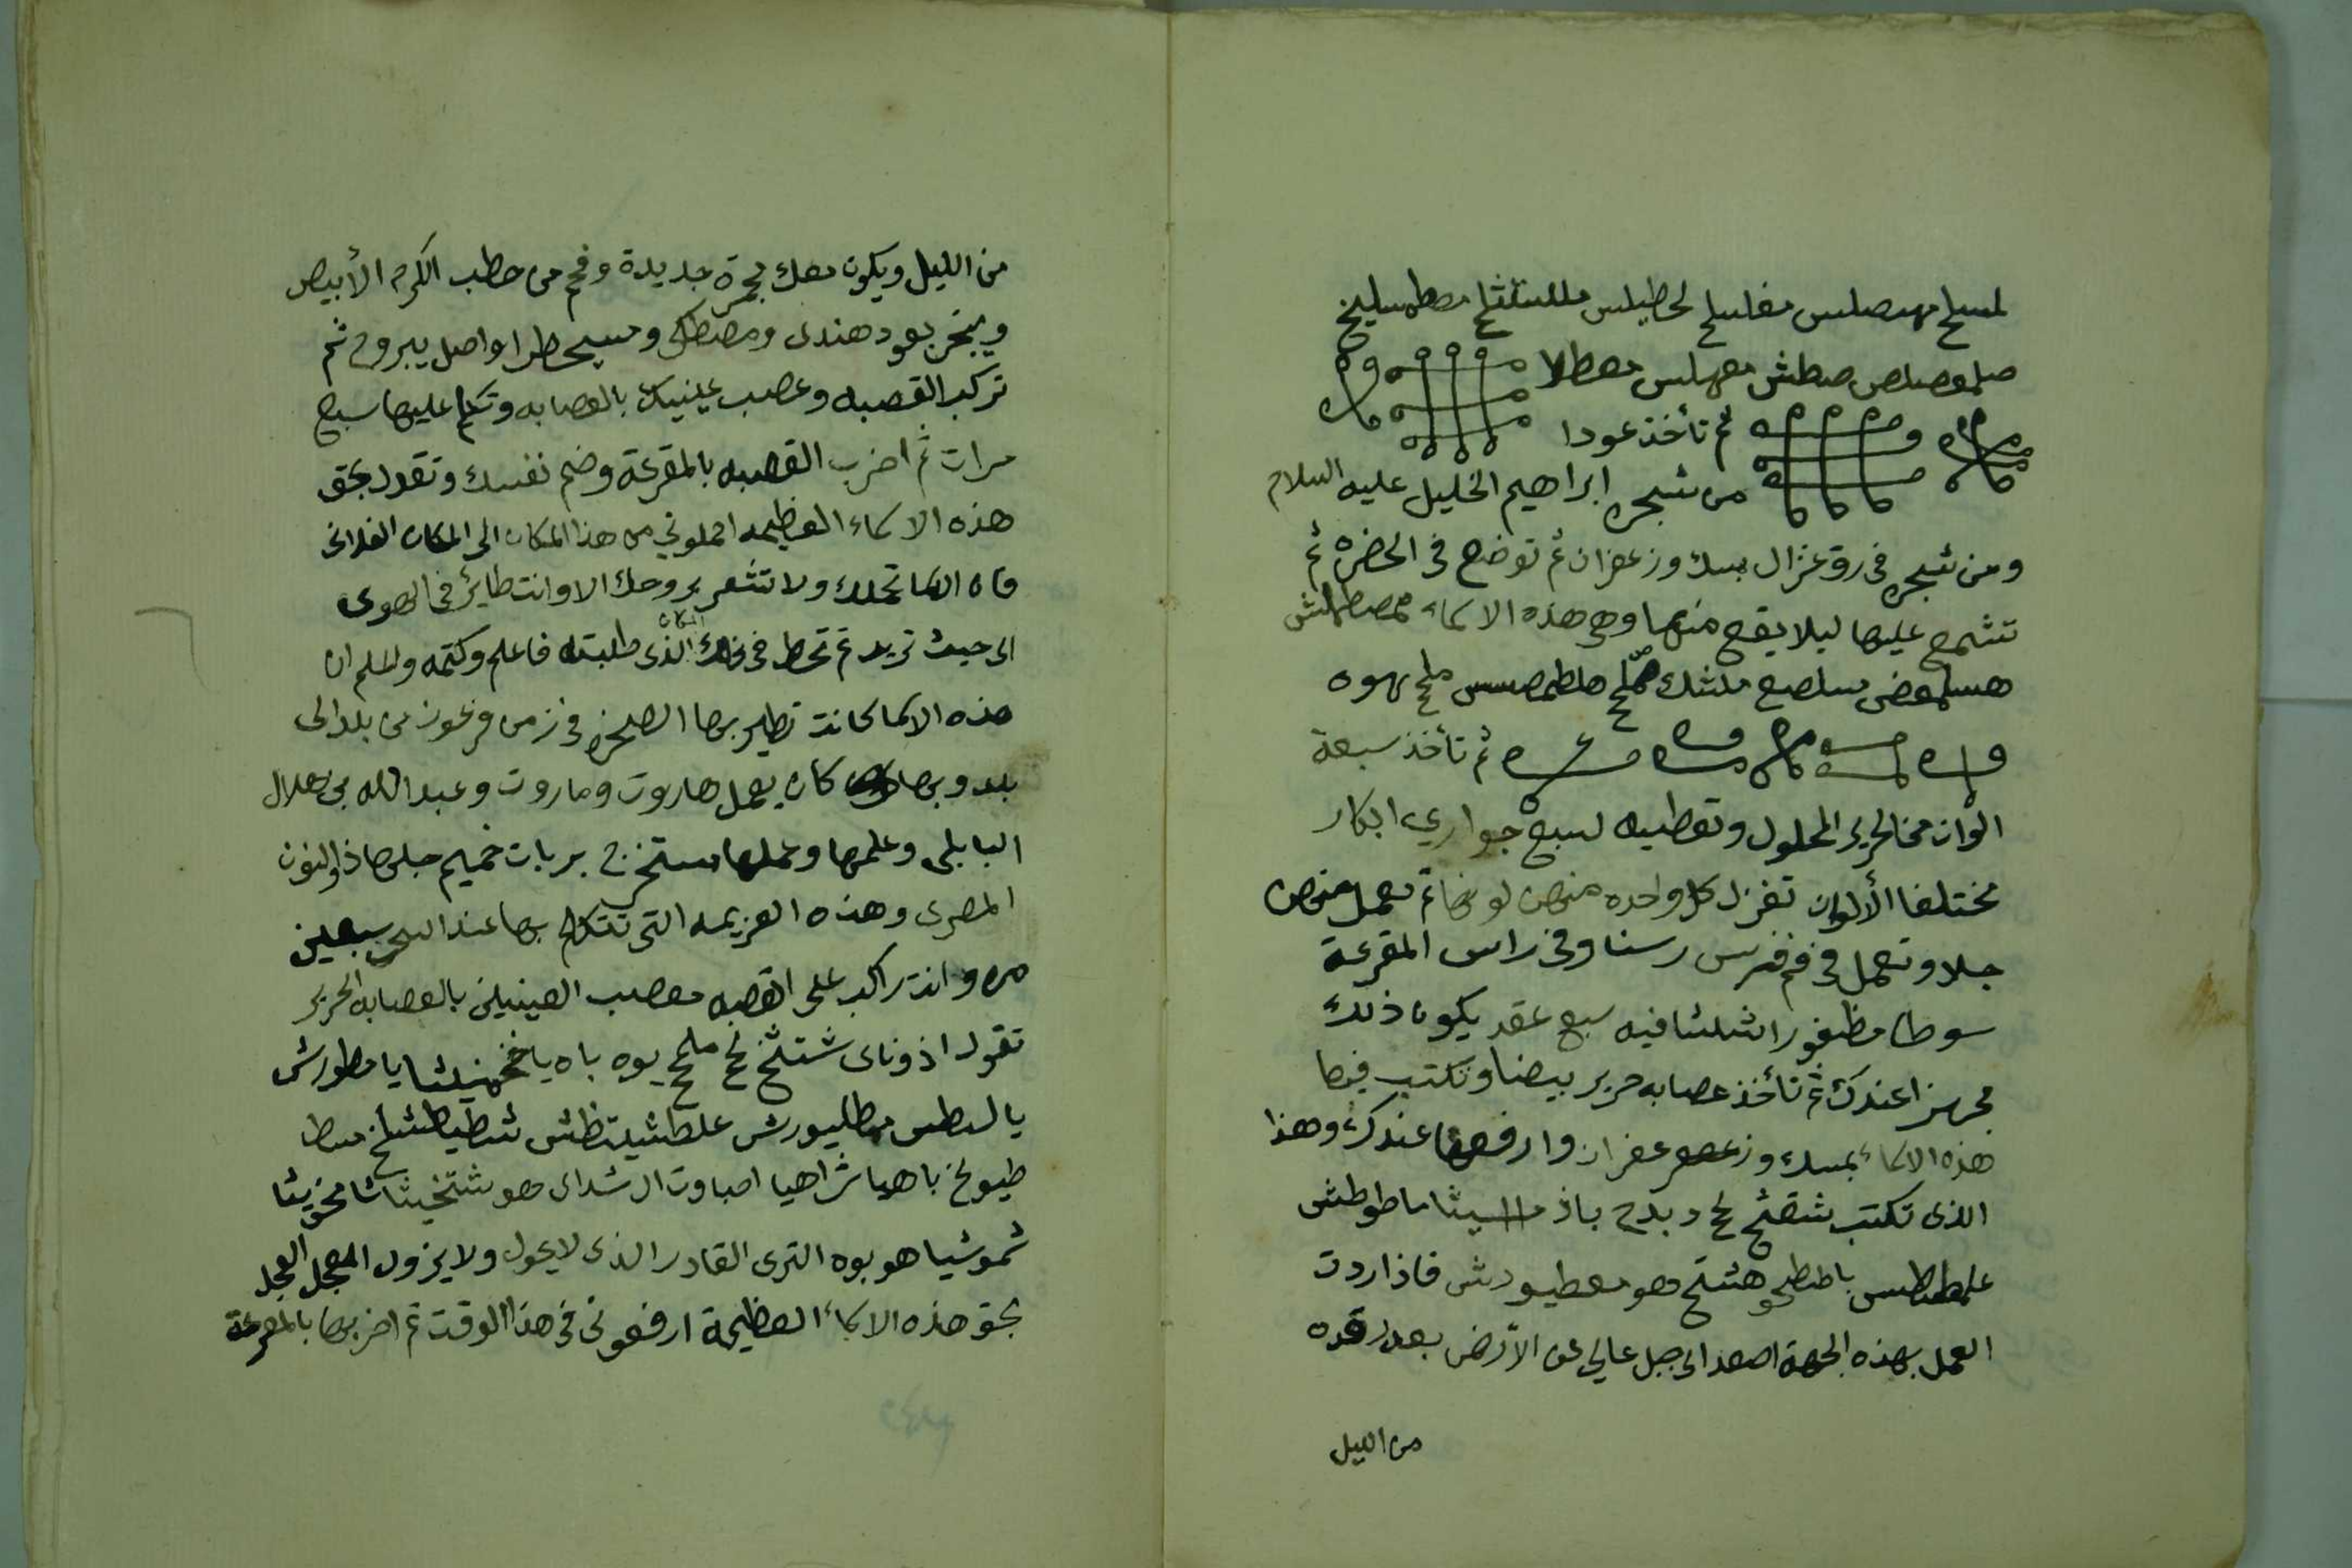 لمسلح مهصلس مفلسلح لحطيلس مللستثلخ مصطمسليخ
صلمعصلص صطش معهلس معطلا
ثم تأخذ عودا
من شجره ابراهيم الخليل عليه السلام
ومن شجره فى رق غزال بمسك وزعفران ثم توضع فى الحضره ثم
تشمع عليها ليلا يقع منها وهى هذه الاسماء
ملح يهوه
ثم تأخذ سبعة
الوان من الحرير المحلول وتعطيه لسبع جواري ابكار
مختلفا الألوان تغزل كل واحده منهن لونها ثم تعمل منهن
جلا وتعمل فى فم فرس رسنا وفى راس المقرعة
سوطا مظفورا مثلثا فيه سبع عقد يكون ذلك
مجهزا عندك ثم تأخذ عصابه حرير بيضا وتكتب فيها
هذه الاسماء بمسك وزعفران وارفعها عندك وهذا
الذى تكتب شقثخ لح دبدح باذ ماطوطش
باططحو هشلخ هو معطيورش فاذا اردت
العمل بهذه الجهة اصعد الى جبل عالى عن الأرض بعد رقده
من الليل
من الليل ويكون معك مجمرة جديدة وفحم من حطب الكرم الأبيض
ويبخر بعود هندى ومصطكى واصل يبروح ثم
تركب القصبه وعصب عينيك بالعصابه وتكلم عليها سبع
مرات ثم اضرب القصبه بالمقرعة وضم نفسك وتقول بحق
هذه الاسماء العظيمه احملوني من هذا المكان الى المكان الفلانى
فان الاسما تحملك ولا تشعر بروحك الا وانت طاير فى الهوى
الى حيث تريد ثم تحط فى ذلك المكان الذى طلبته فاعلم وكتمه واعلم ان
هذه الاسما كانت تطير بها السحره فى زمن فرعون من بلد الى
بلد وبها كان يعمل هاروت وماروت وعبد الله بن هلال
البابلى وعلمها وعملها مستخرج بربات خميم جلبها ذوالنون
المصرى وهذه العزيمه التى تتكلم بها عند السحر سبعين
مره وانت راكب على القصبه معصب العينين بالعصابه الحرير
تقول اذوناى شتلثخ لخ ملخ يوه باه يا يا مطورش
يا لسطس مطليورش علطشيلتظش شطيطشلخ مسط
طيولخ باهيا شراهيا اصباوت ال شداى هو شتخيثا ثا مخوشيا
شموشيا هو بوه الترى القادر الذى لا يحول ولا يزول العجل العجل
بحق هذه الاسماء العظيمة ارفعونى فى هذا الوقت ثم اضربها بالمقرعة